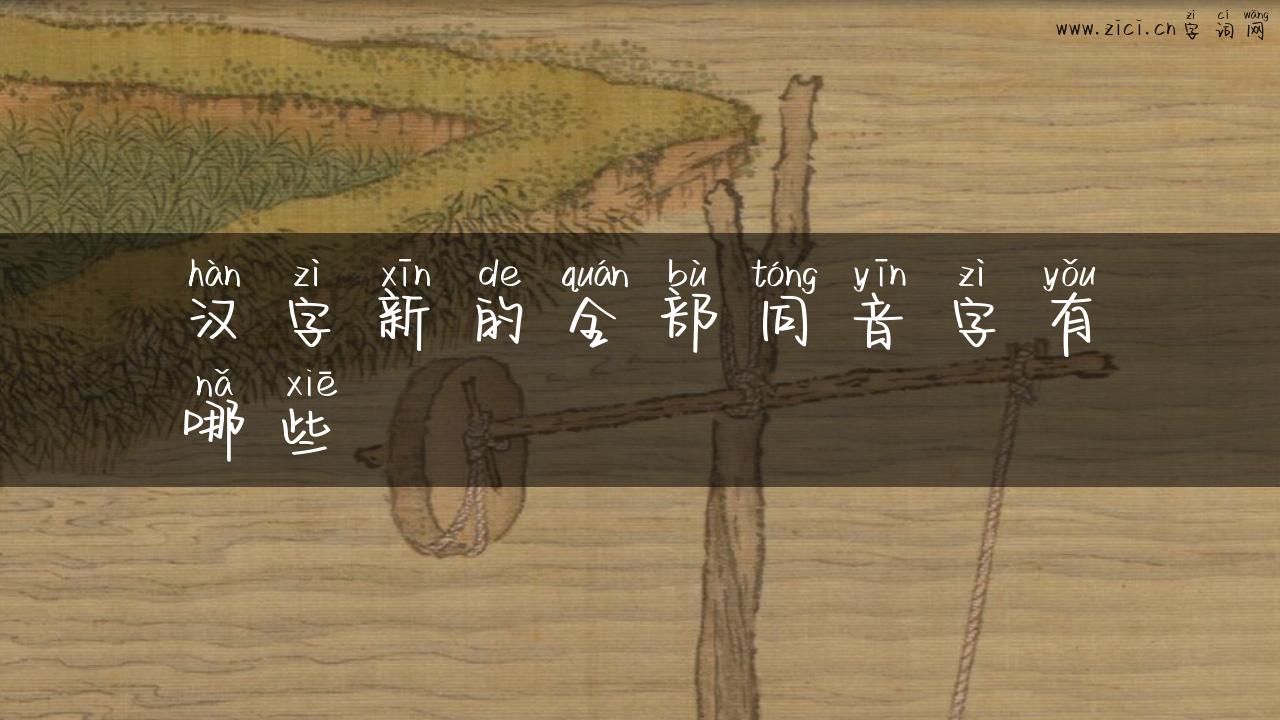 zì cí wǎng
www.zici.cn字词网
hàn zì xīn de quán bù tóng yīn zì yǒu
汉字新的全部同音字有
nǎ xiē
哪些